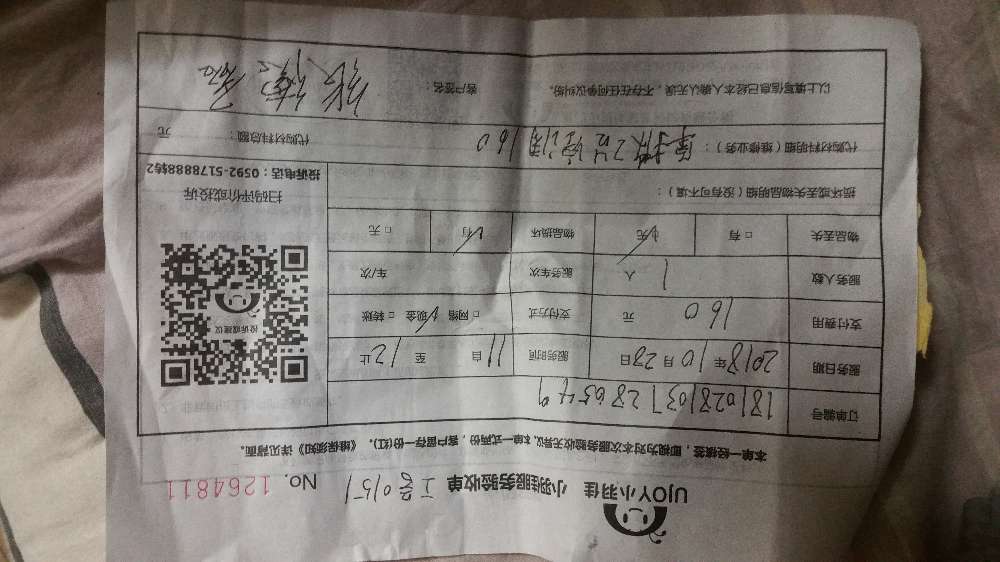 UJOY小羽佳 小羽佳服务验收单 工号0151 No. 1264811
本单一经续签，即视为对本次服务验收无异议。本单一式两份，客户留存一份(红)。《维保须知》详见背面。
订单编号 1810281031286549
服务日期 2018年10月28日 服务时间 11自 至12止
支付费用 160 元 支付方式 □网销 √现金 □转账
服务人数 1 人 服务车次 车/次
物品丢失 □有 √无 物品损坏 √有 □无
损坏或丢失物品明细（没有可不填）：
投诉或建议
扫码评价或投诉
投诉电话：0592-5178888转2
代购材料明细（维修业务）： 160 代购材料总额： 元
以上填写信息已经本人确认无误，不存在任何争议纠纷。 客户签名：